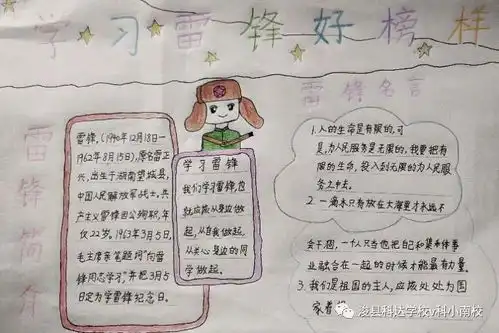 学习雷锋好榜样
雷锋简介
雷锋,(1940年12月18日—
1962年8月15日),原名雷正
兴,出生于湖南望城县,
中国人民解放军战士,共
产主义雷锋因公殉职,年
仅22岁。1963年3月5日,
毛主席亲笔题词"向雷
锋同志学习",并把3月5
日定为学雷锋纪念日。
学习雷锋
我们学习雷锋,也
就应该从身边做
起,从自我做起,
从关心身边的同
学做起。
雷锋名言
1.人的生命是有限的,可
是,为人民服务是无限的,我要把有
限的生命,投入到无限的为人民服
务之中去。
2.一滴水只有放在大海里才永远不
会干涸,一个人只有当他把自己和集体事
业融合在一起的时候才能最有力量。
3.我们是祖国的主人,应该处处为国
家着
浚县科达学校y科小南校